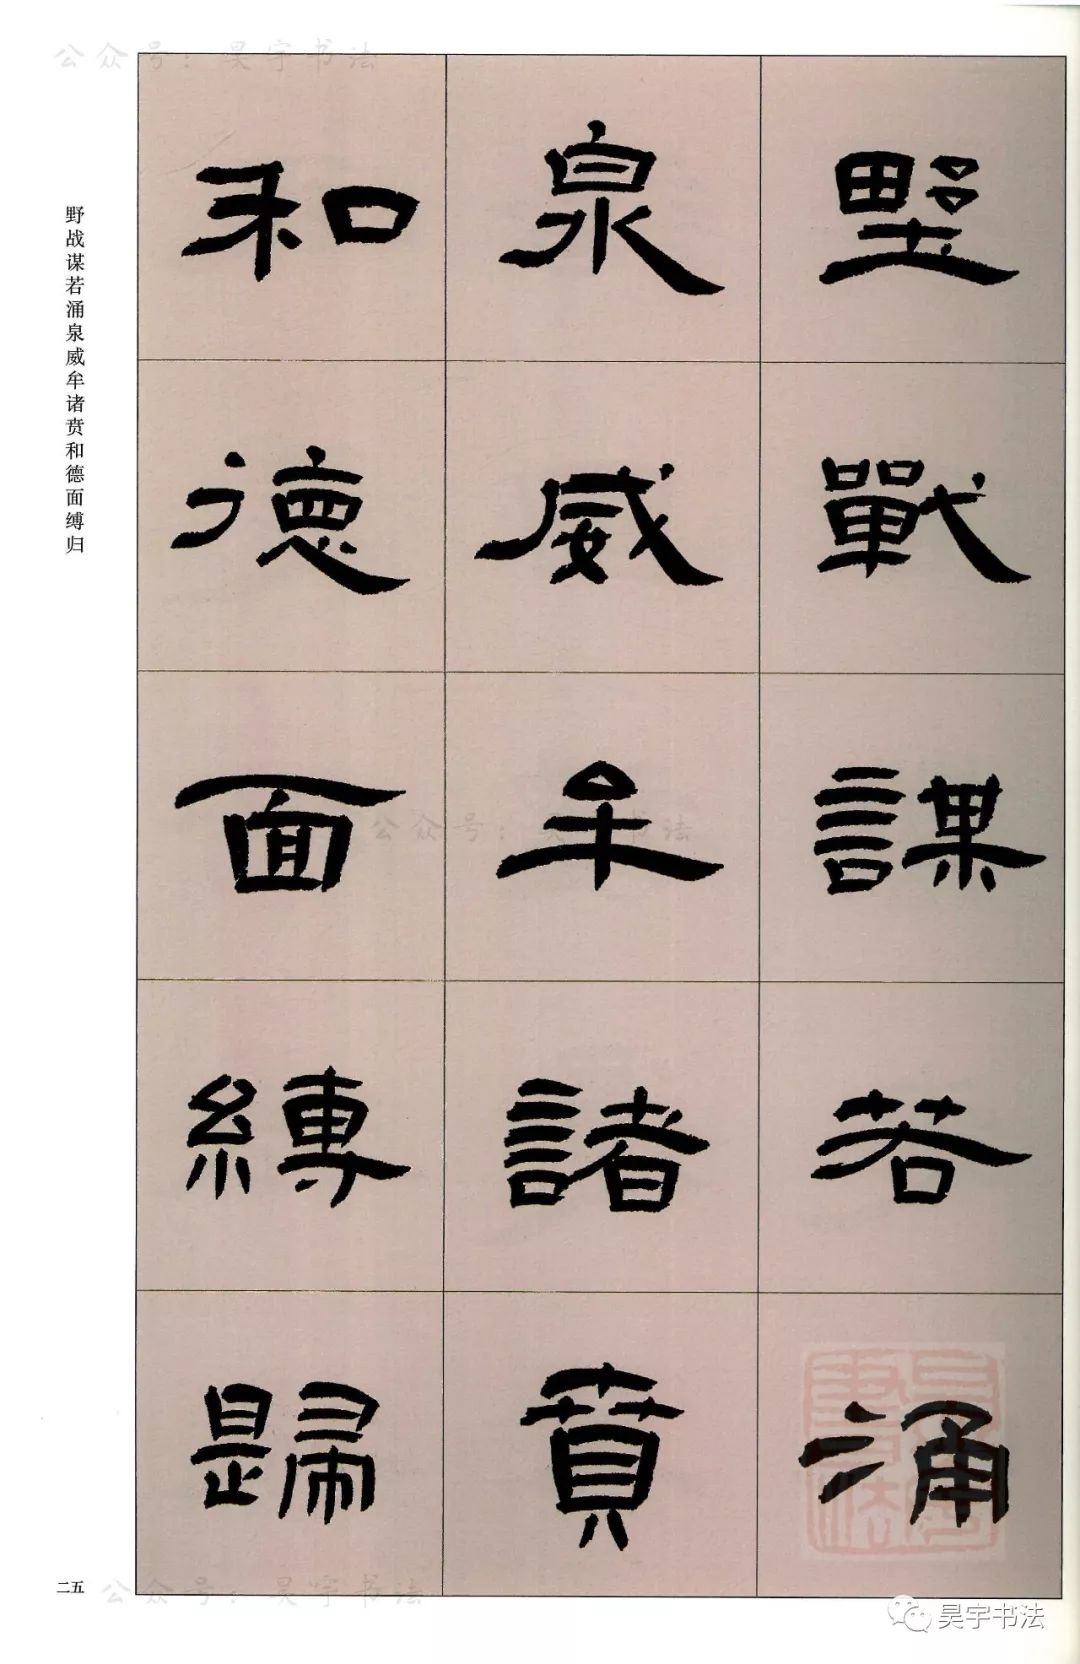 公众号：昊宇书法
野戰謀若涌
泉威牟諸賁
和德面縛歸
野战谋若涌泉威牟诸贲和德面缚归
公众号：昊宇书法
二五
公众号：昊宇书法
昊宇书法